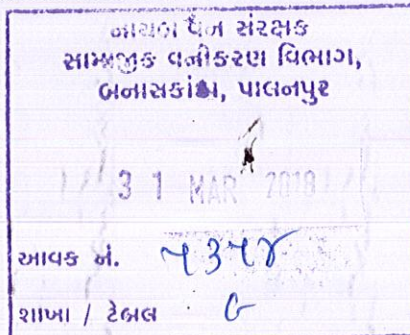 નાયબ વન સંરક્ષક
સામાજીક વનીકરણ વિભાગ,
બનાસકાંઠા, પાલનપુર
31 MAR 2018
આવક નં. ૧૩૧૪
શાખા / ટેબલ